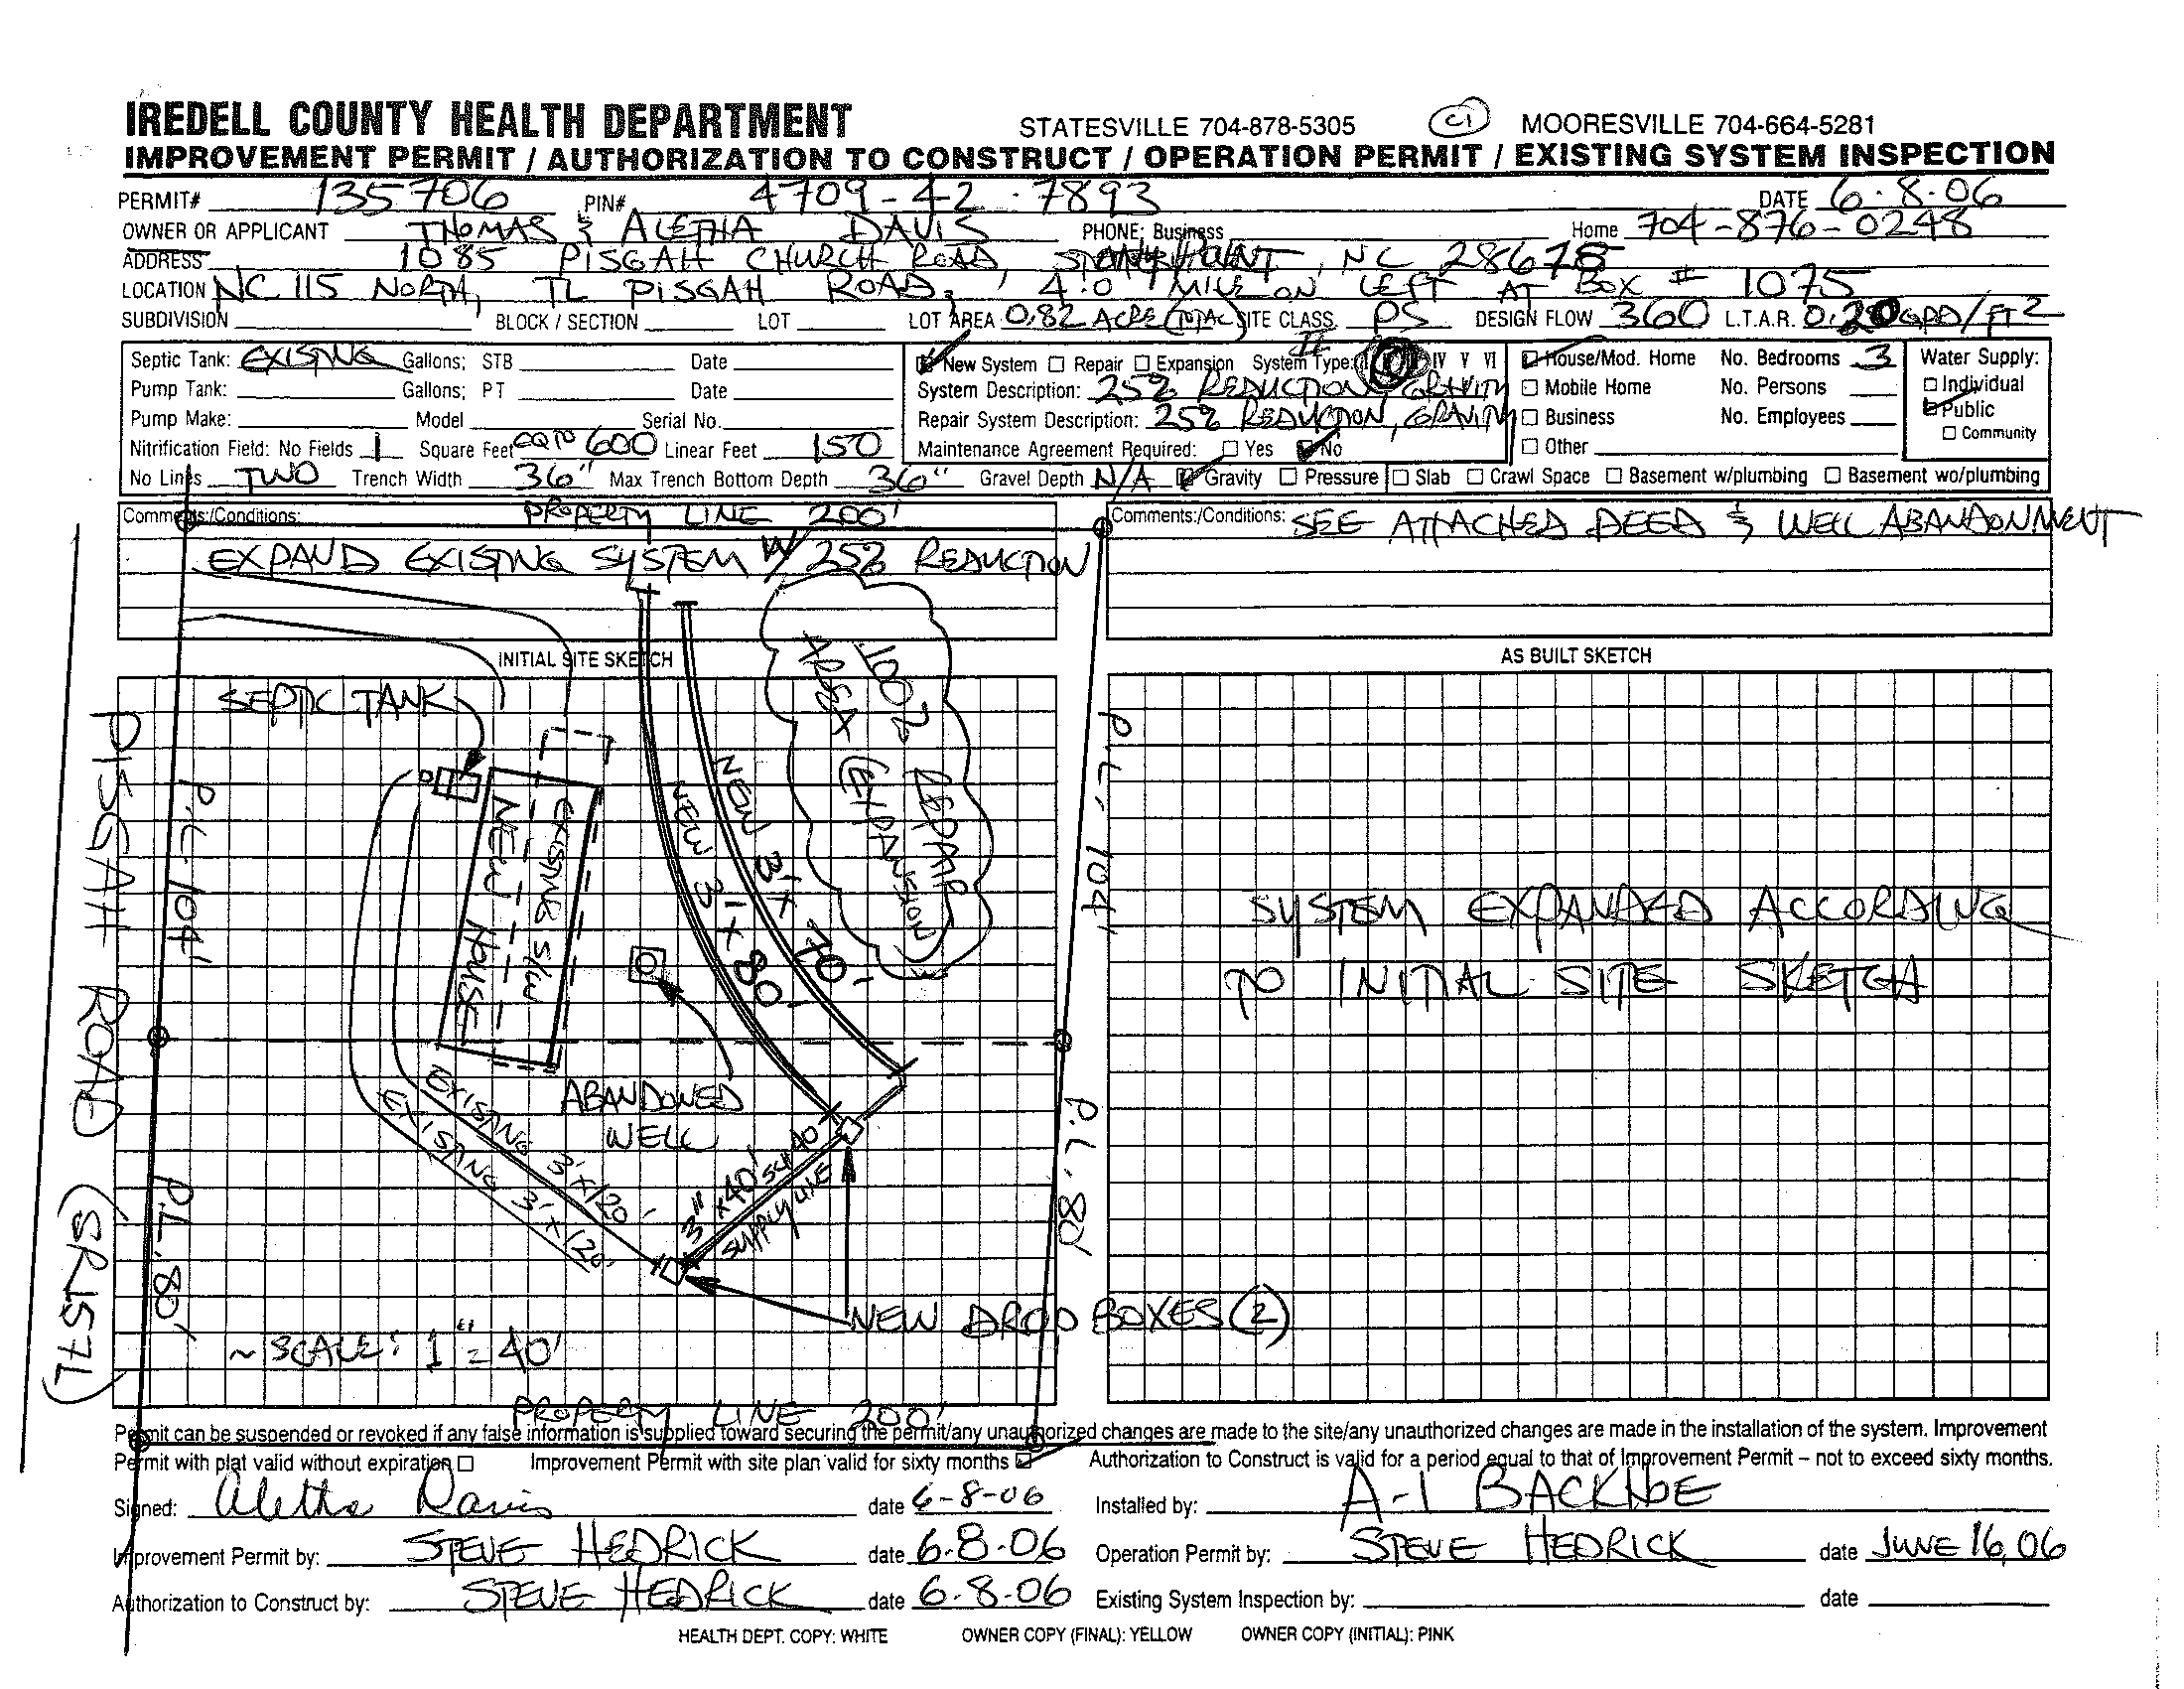 IREDELL COUNTY HEALTH DEPARTMENT STATESVILLE 704-878-5305 C1 MOORESVILLE 704-664-5281
IMPROVEMENT PERMIT / AUTHORIZATION TO CONSTRUCT / OPERATION PERMIT / EXISTING SYSTEM INSPECTION
PERMIT# 135706 PIN# 4709-42-7893 DATE 6-8-06
OWNER OR APPLICANT THOMAS & ALETHA DAVIS PHONE: Business Home 704-876-0248
ADDRESS 1085 PISGAH CHURCH ROAD, NC 28678
LOCATION NC 115 NORTH, TL PISGAH ROAD, 4.0 MILE ON LEFT AT BOX # 1075
SUBDIVISION BLOCK / SECTION LOT LOT AREA 0.82 ACRE (TOTAL) SITE CLASS PS DESIGN FLOW 360 L.T.A.R. 0.20 GPD/FT2
Septic Tank: EXISTING Gallons; STB Date
Pump Tank: Gallons; PT Date
Pump Make: Model Serial No.
Nitrification Field: No Fields 1 Square Feet EQ TO 600 Linear Feet 150
No Lines TWO Trench Width 36" Max Trench Bottom Depth 36" Gravel Depth N/A Gravity Pressure Slab Crawl Space Basement w/plumbing Basement wo/plumbing
New System Repair Expansion System Type: II IV V VI
System Description: 25% REDUCTION, GRAVITY
Repair System Description: 25% REDUCTION, GRAVITY
Maintenance Agreement Required: Yes No
House/Mod. Home No. Bedrooms 3
Mobile Home No. Persons
Business No. Employees
Other
Water Supply:
Individual
Public
Community
Comments:/Conditions: PROPERTY LINE 200'
EXPAND EXISTING SYSTEM W/ 25% REDUCTION
Comments:/Conditions: SEE ATTACHED DEED & WELL ABANDONMENT
INITIAL SITE SKETCH
AS BUILT SKETCH
SEPTIC TANK
100% REPAIR
AREA (EXPANSION)
NEW 3' X 70'
NEW 3' X 80'
EXISTING S/W
NEW HOUSE
P.L. 104'
P.L. 104'
PISGAH ROAD (SR 1571)
SYSTEM EXPANDED ACCORDING
TO INITIAL SITE SKETCH
ABANDONED
WELL
EXISTING 3' X 120'
EXISTING 3' X 120'
3" X 40' SCH 40
SUPPLY LINE
P.L. 80'
P.L. 80'
NEW DROP BOXES (2)
~ SCALE: 1" = 40'
PROPERTY LINE 200'
Permit can be suspended or revoked if any false information is supplied toward securing the permit/any unauthorized changes are made to the site/any unauthorized changes are made in the installation of the system. Improvement
Permit with plat valid without expiration Improvement Permit with site plan valid for sixty months Authorization to Construct is valid for a period equal to that of Improvement Permit – not to exceed sixty months.
Signed: Aletha Davis date 6-8-06 Installed by: A-1 BACKHOE
Improvement Permit by: STEVE HEDRICK date 6-8-06 Operation Permit by: STEVE HEDRICK date JUNE 16, 06
Authorization to Construct by: STEVE HEDRICK date 6-8-06 Existing System Inspection by: date
HEALTH DEPT. COPY: WHITE OWNER COPY (FINAL): YELLOW OWNER COPY (INITIAL): PINK